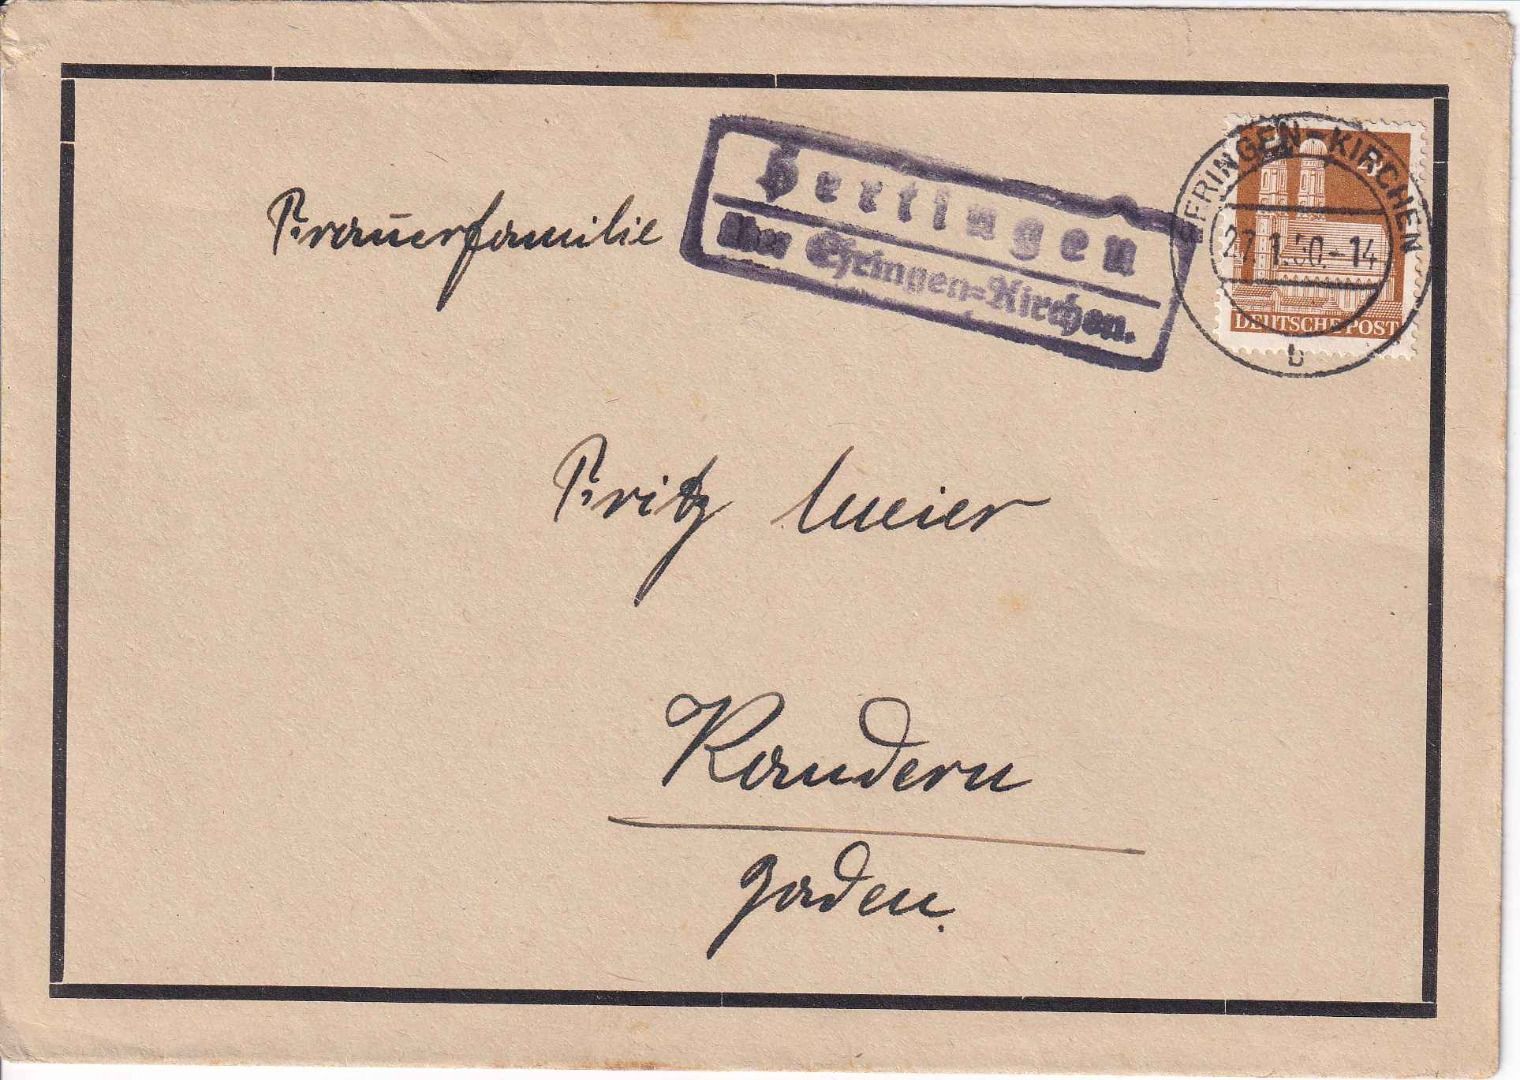 Trauerfamilie
Hertingen
über Efringen=Kirchen.
EFRINGEN-KIRCHEN
27.1.50.-14
b
DEUTSCHE POST
Fritz Meier
Kandern
Baden.